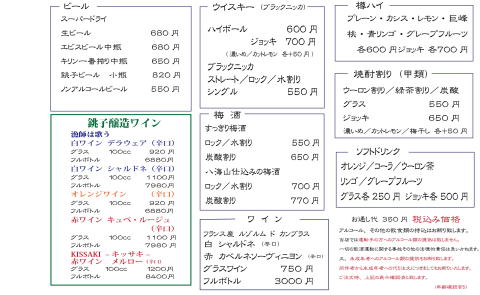 ビール
スーパードライ
生ビール 680 円
エビスビール中瓶 680 円
キリン一番搾り中瓶 650 円
銚子ビール 小瓶 820 円
ノンアルコールビール 550 円
銚子醸造ワイン
漁師は歌う
白ワイン デラウェア（辛口）
グラス 100cc 920 円
フルボトル 6680円
白ワイン シャルドネ（辛口）
グラス 100cc 1100円
フルボトル 7980円
オレンジワイン （辛口）
グラス 100cc 920 円
フルボトル 6680円
赤ワイン キュベ・ルージュ
（辛口）
グラス 100cc 1100 円
フルボトル 7980 円
KISSAKI －キッサキ－
赤ワイン メルロー（辛口）
グラス 100cc 1200円
フルボトル 8400円
ウイスキー（ブラックニッカ）
ハイボール 600 円
ジョッキ 700 円
（濃いめ／カットレモン 各+50 円）
ブラックニッカ
ストレート／ロック／水割り
シングル 550 円
梅 酒
すっきり梅酒
ロック／水割り 550 円
炭酸割り 650 円
八海山仕込みの梅酒
ロック／水割り 700 円
炭酸割り 770 円
ワ イ ン
フランス産 ルソルム ド カングラス
白 シャルドネ （辛口）
赤 カベルネソーヴィニヨン （辛口）
グラスワイン 750 円
フルボトル 3000 円
樽ハイ
プレーン・カシス・レモン・巨峰
桃・青リンゴ・グレープフルーツ
各600円ジョッキ 各700 円
焼酎割り（甲類）
ウーロン割り／緑茶割り／炭酸
グラス 550 円
ジョッキ 650 円
濃いめ／カットレモン／梅干し 各+50 円
ソフトドリンク
オレンジ／コーラ／ウーロン茶
リンゴ／グレープフルーツ
グラス各 250 円 ジョッキ各 500 円
お通し代 350 円 税込み価格
アルコール、その他の飲食類の持込はお断り致します。